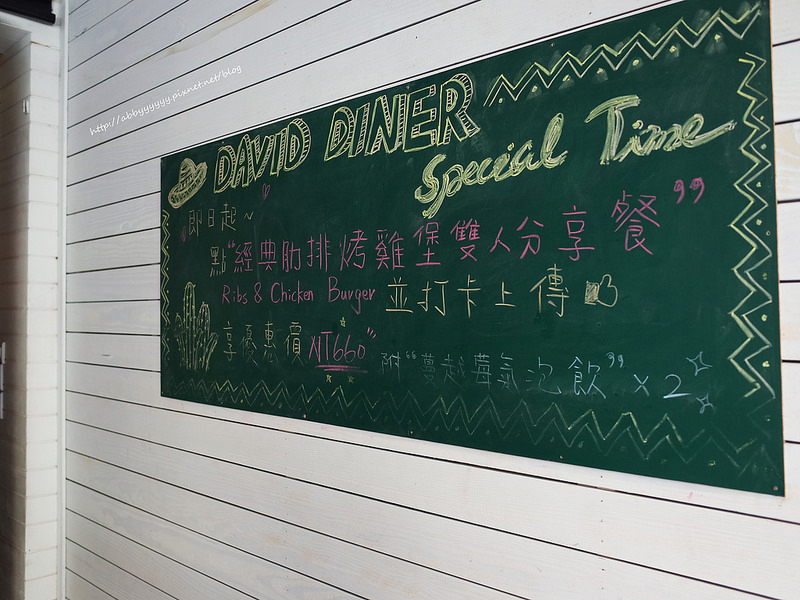 http://abbyyyyyy.pixnet.net/blog
DAVID DINER
Special Time
即日起~
點"經典肋排烤雞堡雙人分享餐"
Ribs & Chicken Burger 並打卡上傳
享優惠價NT660" 附"蔓越莓氣泡飲" x 2